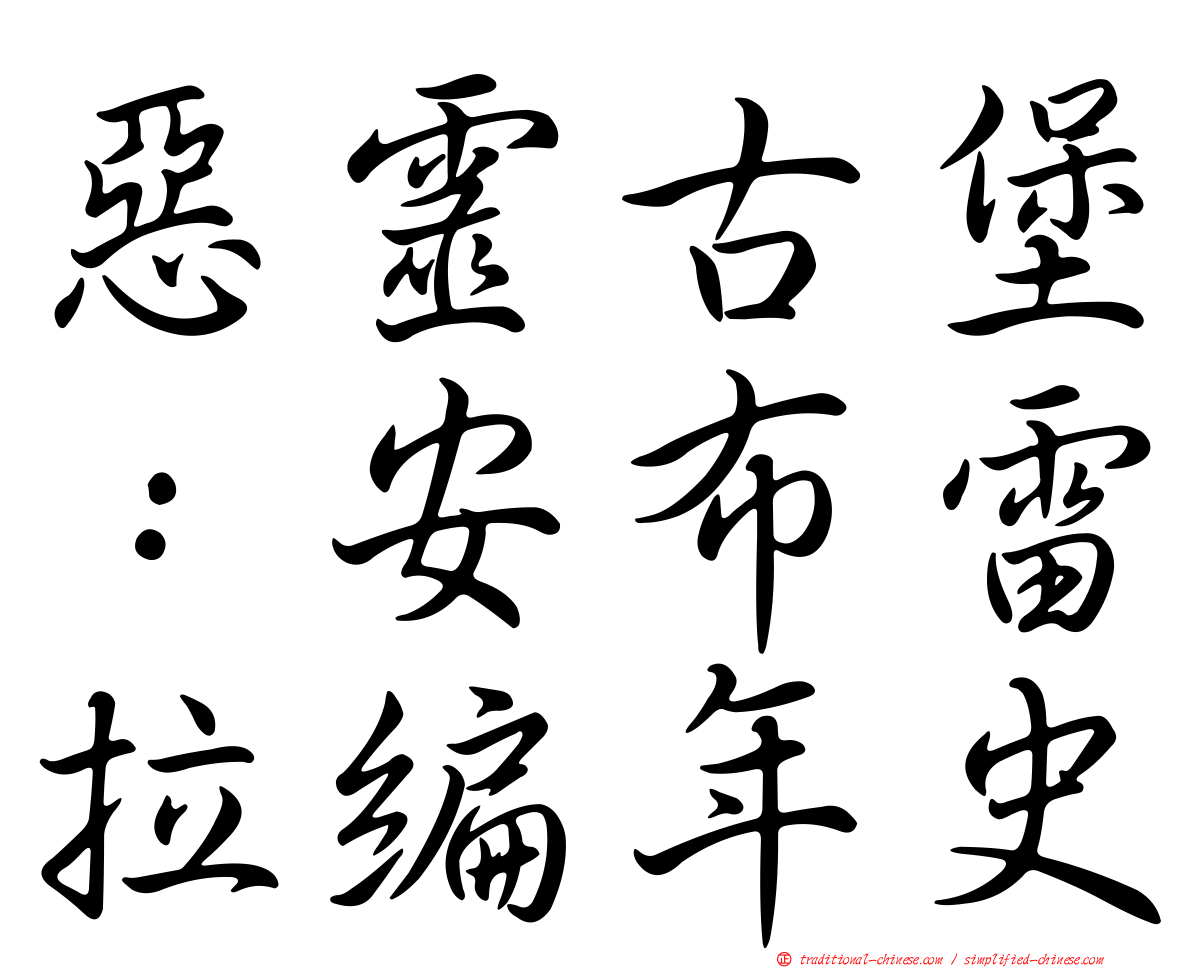 惡靈古堡
：安布雷
拉編年史
正 traditional-chinese.com / simplified-chinese.com